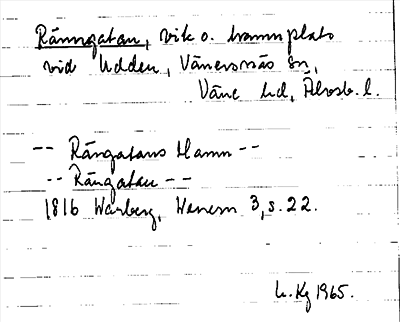 Ränngatan, vik o. hamnplats
vid Udden, Vänersnäs sn,
Väne hd, Älvsb. l.
-- Rängatans Hamn --
-- Rängatan --
1816 Warberg, Wenern 3, s. 22.
Kg 1965.